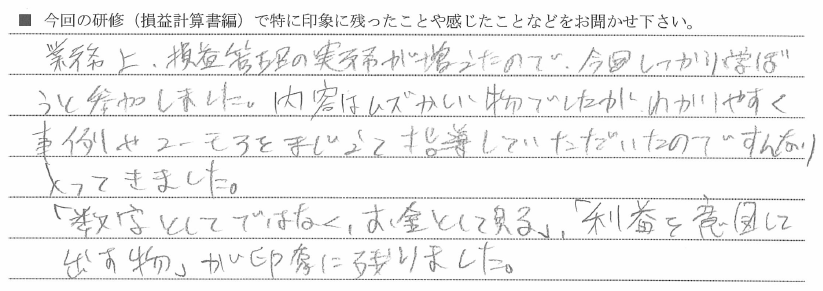 ■ 今回の研修（損益計算書編）で特に印象に残ったことや感じたことなどをお聞かせ下さい。
業務上、損益管理の実務が増えたので、今回しっかり学ぼ
うと参加しました。内容はムズかしい物でしたが、わかりやすく
事例やユーモアをまじえて指導していただいたのですんなり
入ってきました。
「数字としてではなく、お金として見る」、「利益を意図して
出す物」が印象に残りました。